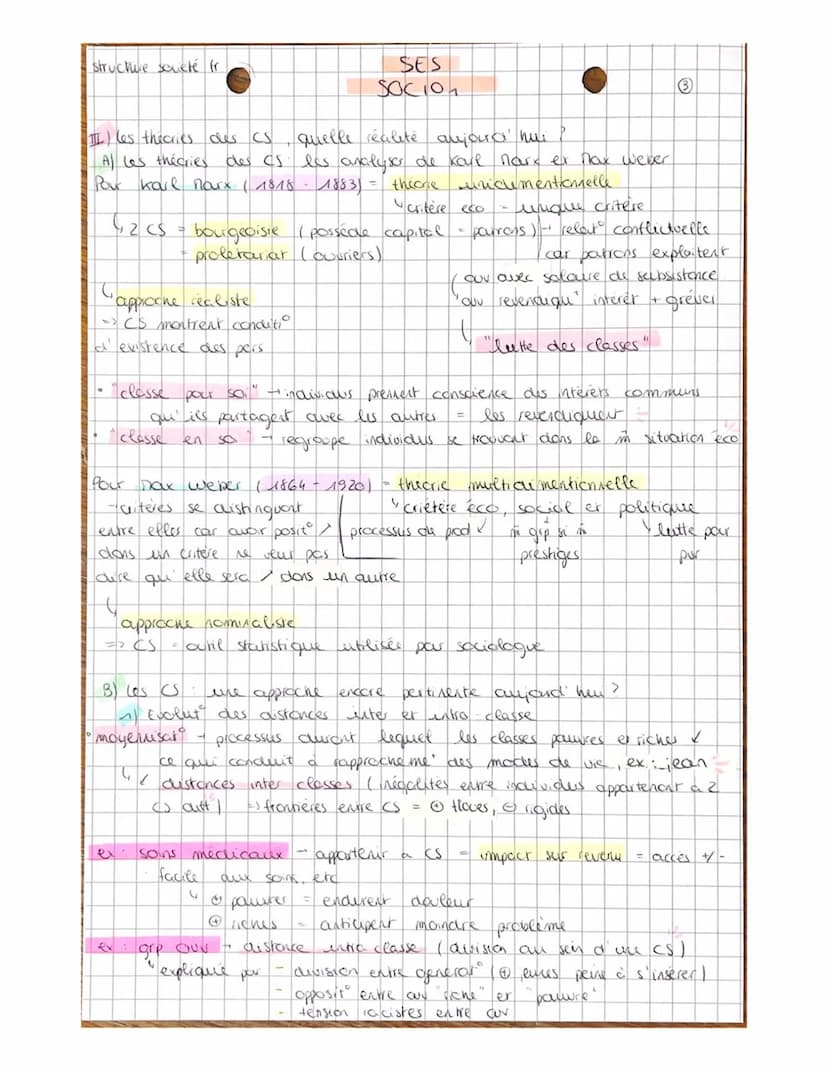 structure société fr
SES
SOCIO 1
③
III) les théories des CS, quelle réalité aujourd'hui ?
A) Les théories des CS : les analyses de Karl Marx et Max Weber
Pour Karl Marx (1818 - 1883) = théorie unidimentionnelle
↳ critère éco = unique critère
↳ 2 CS = bourgeoisie (possède capital = patrons)
= prolétariat (ouvriers)
→ relat° conflictuelle
car patrons exploitent
ouv avec salaire de subsistance
ouv revendiqu° intérêt + grèves
↳ approche réaliste
=> CS montrent conditi°
d'existence des pers
↳ "lutte des classes"
• "classe pour soi" → individus prennent conscience des intérêts communs
qu'ils partagent avec les autres = les revendiquent
• "classe en soi" → regroupe individus se trouvant dans la m̂ situation éco
Pour Max Weber (1864 - 1920) = théorie multidimentionnelle
→ critères se distinguent
entre elles car avoir posit° ↗
dans un critère ne veut pas
dire qu'elle sera ↗ dans un autre
↳ criètère éco, social et politique
processus de prod ↙
m̂ grp si m̂
prestiges
↘ lutte pour
pvr
↳ approche nominaliste
=> CS = outil statistique utilisée par sociologue
B) Les CS : une approche encore pertinente aujourd'hui ?
1) Evolut° des distances inter et intra-classe
• moyennisat° → processus durant lequel les classes pauvres et riches ↙
ce qui conduit à rapprocheme° des modes de vie, ex : jean
↳ ↙ distances inter classes (inégalités entre individus appartenant à 2
CS diff) => frontières entre CS = ⊕ floues, ⊖ rigides
ex : soins médicaux → appartenir à CS = impact sur revenu = accès +/-
facile aux soins, etc
↳ ⊕ pauvres = endurent douleur
⊕ riches = anticipent moindre problème
Ex : grp ouv → distance intra classe (division au sein d'une CS)
↳ expliqué par - division entre générat° (⊕ jeunes peine à s'insérer)
- opposit° entre ouv "riche" et "pauvre"
- tension racistes entre ouv